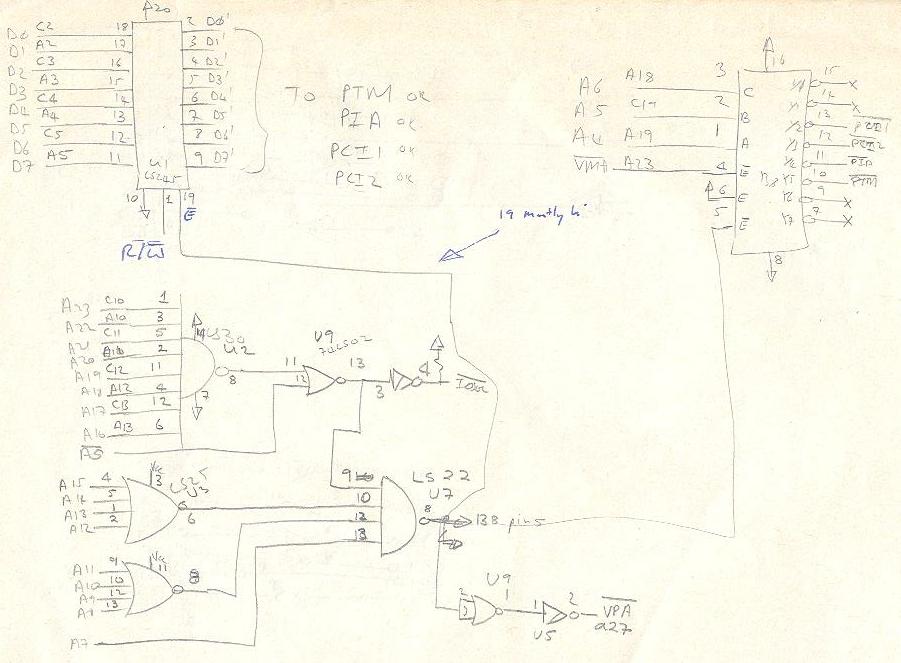 A20
D0 C2 18 2 D0'
D1 A2 17 3 D1'
D2 C3 16 4 D2'
D3 A3 15 5 D3'
D3 C4 14 6 D4'
D4 A4 13 7 D5'
D5 C5 12 8 D6'
D6 A5 11 9 D7'
D7
U1
LS245
10 1 19
E
R/W
TO PTM OR
PIA OR
PCI1 OR
PCI2 OR
19 mostly hi
16
A6 A18 3 C
A5 C17 2 B
A4 A19 1 A
VMA A23 4 E
6 E
5 E
15 X
14 X
13 PCI1
12 PCI2
11 PIA
10 PTM
9 X
7 X
8
A23 C10 1
A22 A10 3
A21 C11 5
A20 A11 2
A19 C12 11
A18 A12 4
A17 C13 12
A16 A13 6
AS
14 LS30
U2
8
7
U9
74LS02
11 13
12
3 4
A15 4
A14 5
A13 1
A12 2
Vcc
3 LS25
U3
6
9
10
12
13
LS22
U7
8
138 pin 5
A11 9
A10 10
A9 12
A8 13
Vcc
11
8
A7
U9
2 1
3
1 2
U5
VPA
a27